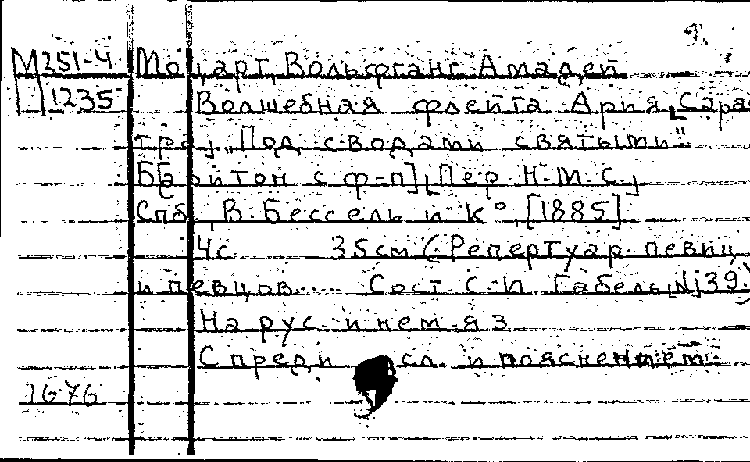 М251-4 Моцарт, Вольфганг Амадей
1235 Волшебная флейта. Ария Сара
тро „Под сводами святыми"
[Баритон с ф-п] Пер. Н.М.С.
Спб, В. Бессель и К°, [1885]
4с. 35см (Репертуар певиц
и певцов.... Сост. С.И. Габель, №39)
На рус. и нем. яз
С пред исл. и пояснением.
1676